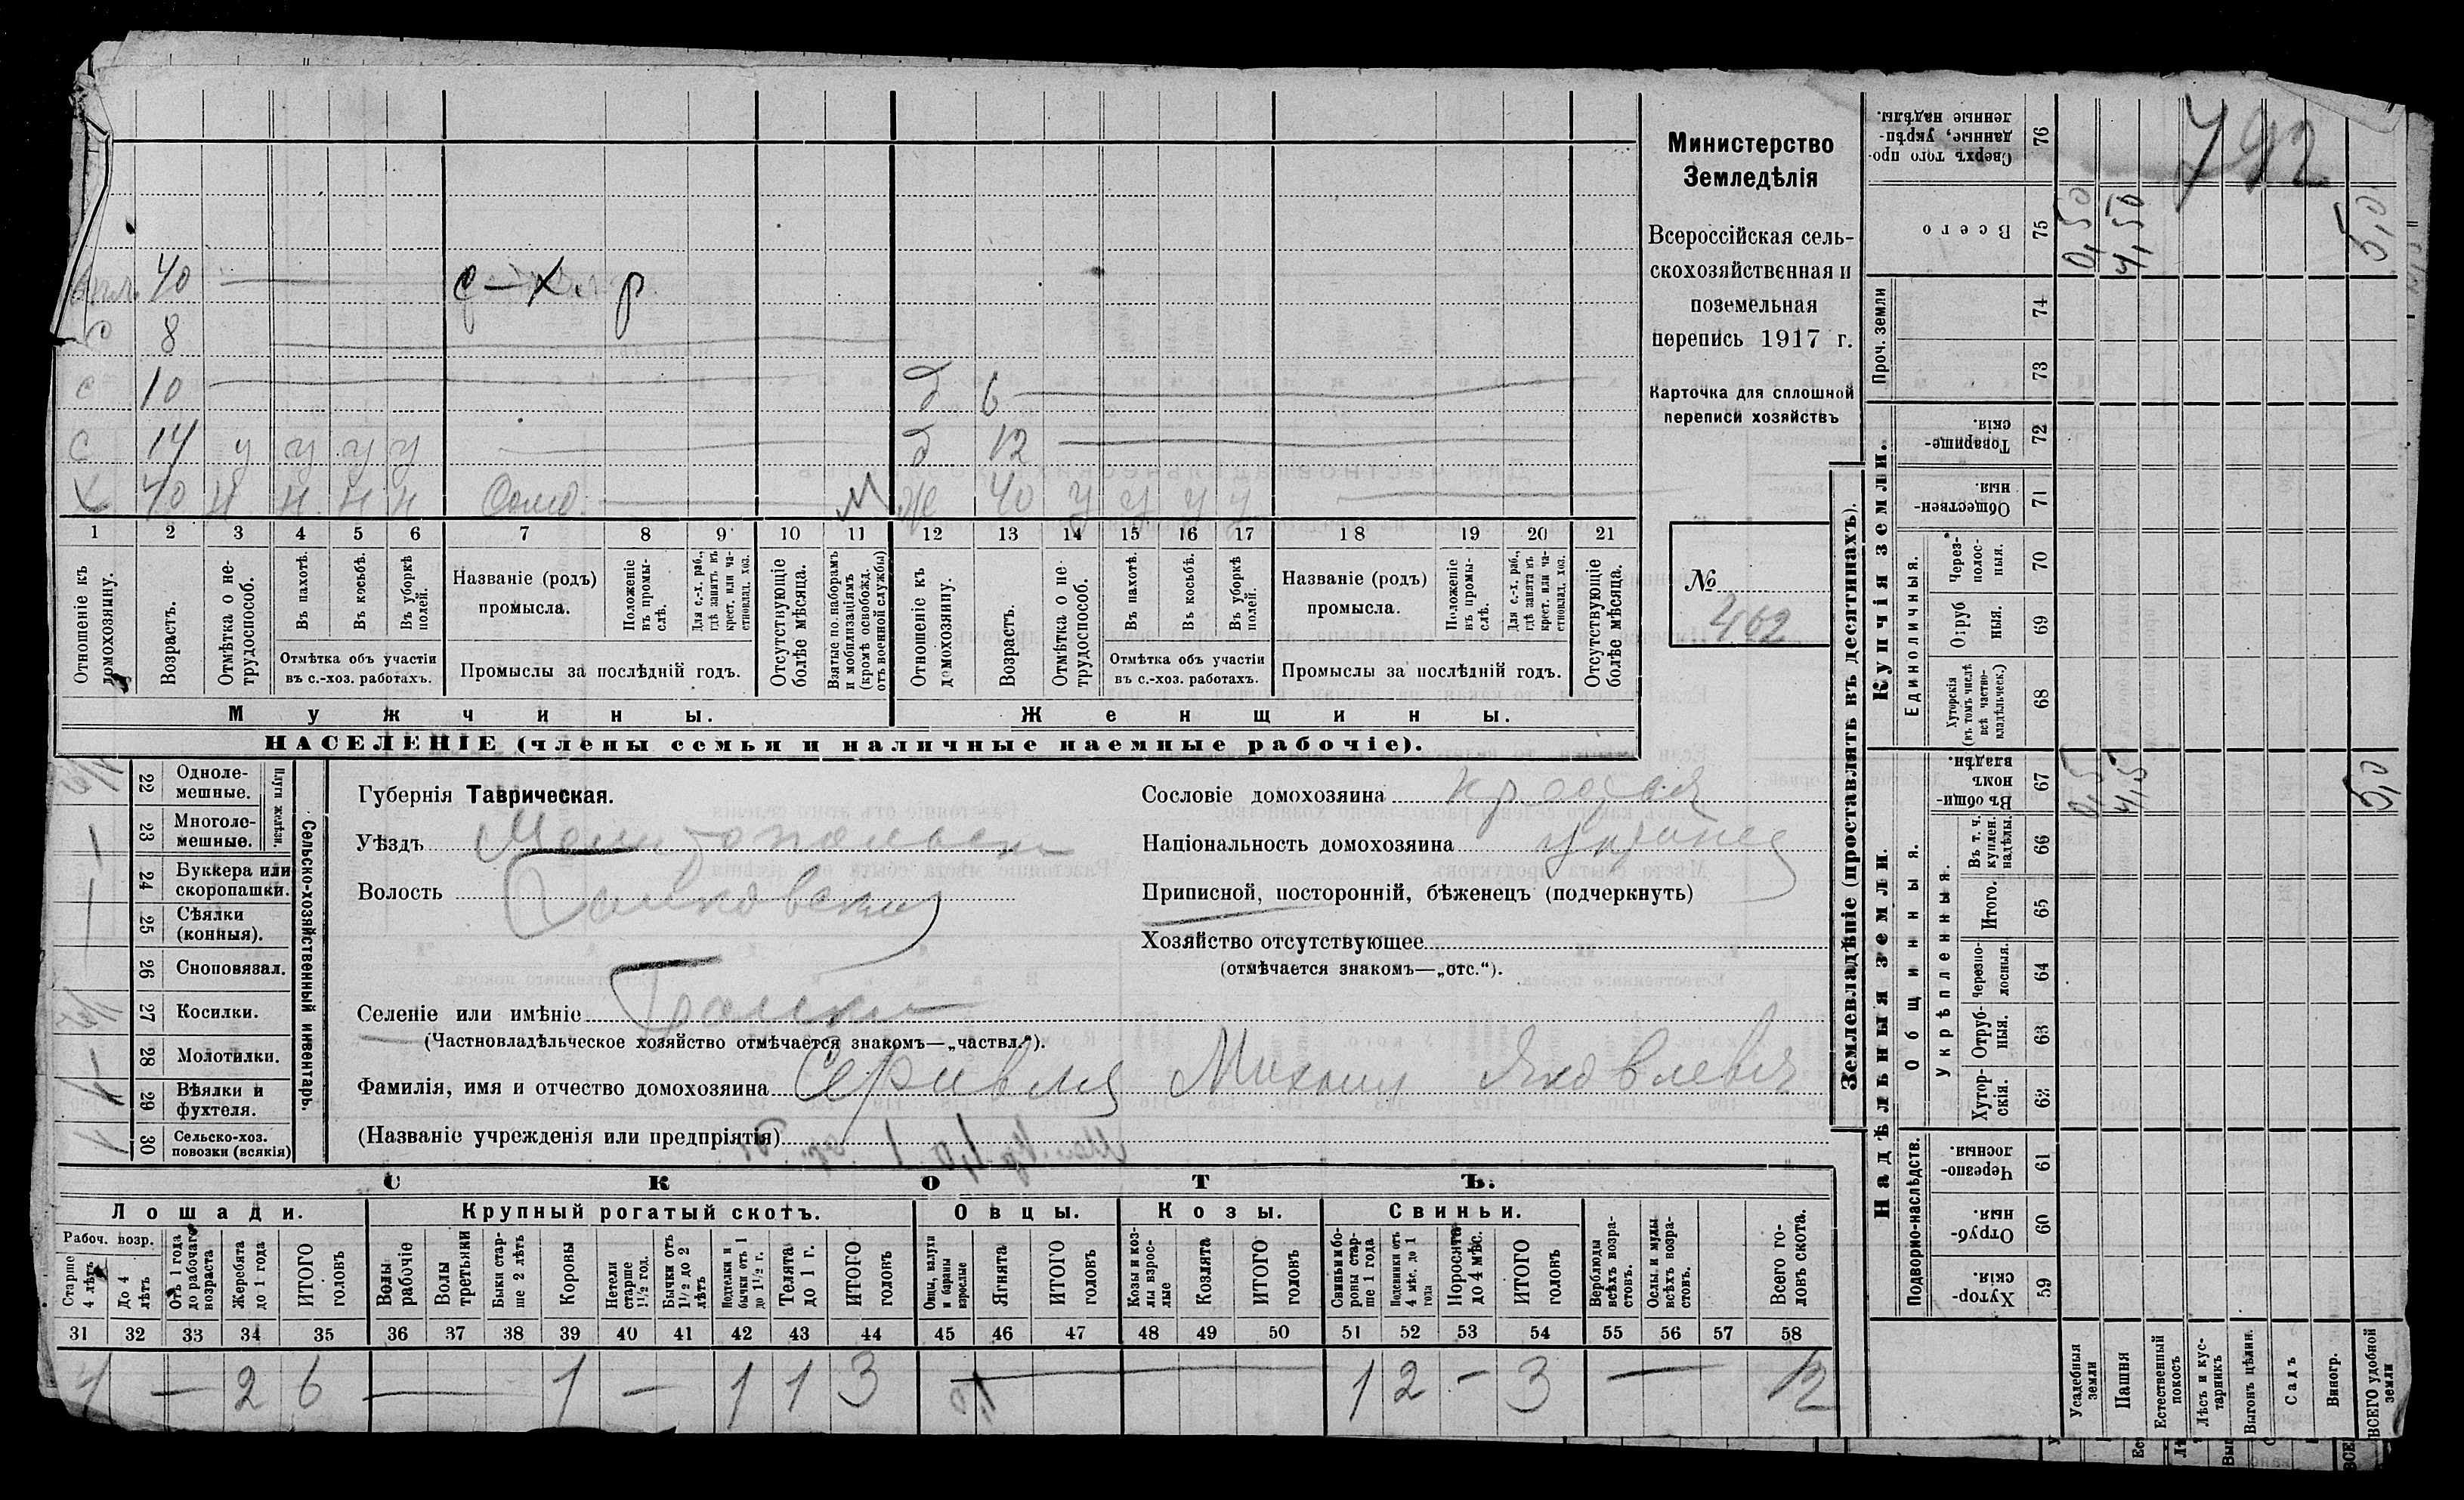 792
Министерство
Земледѣлія
Всероссійская сель-
скохозяйственная и
поземельная
перепись 1917 г.
Карточка для сплошной
переписи хозяйствъ
№
462
40 с-х. р
с 8
с 10 д 6
с 14 у у у у д 12
х 40 н н н н м ж 40 у у у у
1 2 3 4 5 6 7 8 9 10 11 12 13 14 15 16 17 18 19 20 21
Отношеніе къ домохозяину.
Возрастъ.
Отмѣтка о не-трудоспособ.
Въ пахотѣ.
Въ косьбѣ.
Въ уборкѣ полей.
Отмѣтка объ участіи въ с.-хоз. работахъ.
Названіе (родъ) промысла.
Положеніе въ промы-слѣ.
Для с.-х. раб., гдѣ занятъ въ крест. или ча-стновлад. хоз.
Промыслы за послѣдній годъ.
Отсутствующіе болѣе мѣсяца.
Взятые по наборамъ и мобилизаціямъ (кромѣ освобожд. отъ военной службы)
Отношеніе къ домохозяину.
Возрастъ.
Отмѣтка о не-трудоспособ.
Въ пахотѣ.
Въ косьбѣ.
Въ уборкѣ полей.
Отмѣтка объ участіи въ с.-хоз. работахъ.
Названіе (родъ) промысла.
Положеніе въ промы-слѣ.
Для с.-х. раб., гдѣ занята въ крест. или ча-стновлад. хоз.
Промыслы за послѣдній годъ.
Отсутствующіе болѣе мѣсяца.
Мужчины. Женщины.
НАСЕЛЕНІЕ (члены семьи и наличные наемные рабочіе).
Сельско-хозяйственный инвентарь.
Плуги желѣзн.
22 Одноле-мешные.
23 Многоле-мешные.
24 Буккера или скоропашки.
25 Сѣялки (конныя).
26 Сноповязал.
27 Косилки.
28 Молотилки.
29 Вѣялки и фухтеля.
30 Сельско-хоз. повозки (всякія)
Губернія Таврическая.
Уѣздъ
Волость
Селеніе или имѣніе
(Частновладѣльческое хозяйство отмѣчается знакомъ—„частвл.“).
Фамилія, имя и отчество домохозяина Михаил Яковлевич
(Названіе учрежденія или предпріятія)
Сословіе домохозяина
Національность домохозяина
Приписной, посторонній, бѣженецъ (подчеркнуть)
Хозяйство отсутствующее
(отмѣчается знакомъ—„отс.“).
СКОТЪ.
Лошади. Крупный рогатый скотъ. Овцы. Козы. Свиньи.
Рабоч. возр.
Старше 4 лѣтъ
До 4 лѣтъ
Отъ 1 года до рабочаго возраста
Жеребята до 1 года
ИТОГО головъ
Волы рабочіе
Волы третьяки
Быки стар-ше 2 лѣтъ
Коровы
Нетели старше 1½ год.
Бычки отъ 1½ до 2 лѣтъ
Подтелки и бычки отъ 1 до 1½ г.
Телята до 1 г.
ИТОГО головъ
Овцы, валухи и бараны взрослые
Ягнята
ИТОГО головъ
Козы и коз-лы взрос-лые
Козлята
ИТОГО головъ
Свиньи и бо-ровы стар-ше 1 года
Подсвинки отъ 4 мѣс. до 1 года
Поросята до 4 мѣс.
ИТОГО головъ
Верблюды всѣхъ возра-стовъ.
Ослы и мулы всѣхъ возра-стовъ.
Всего го-ловъ скота.
31 32 33 34 35 36 37 38 39 40 41 42 43 44 45 46 47 48 49 50 51 52 53 54 55 56 57 58
4 — 2 6 — 1 — 1 1 3 — 1 2 - 3 — 12
Землевладѣніе (проставлять въ десятинахъ).
Купчія земли.
Проч. земли
Единоличныя.
Надѣльныя земли.
Общинныя.
Укрѣпленныя.
Подворно-наслѣдств.
Сверхъ того про-данные, укрѣп-ленные надѣлы. 76
Всего 75 0,50 4,50 5,0
74
73
Товарище-скія. 72
Обществен-ныя. 71
Через-полос-ныя. 70
Отруб-ныя. 69
Хуторскія (въ томъ числѣ всѣ частно-владѣльческ.) 68
Въ общин-номъ владѣн. 67 0,5 4,5 5,0
Въ т. ч. куплен. надѣлы. 66
Итого. 65
Черезпо-лосныя. 64
Отруб-ныя. 63
Хутор-скія. 62
Черезпо-лосныя. 61
Отруб-ныя. 60
Хутор-скія. 59
Усадебныя земли
Пашня
Естественный покосъ
Лѣсъ и кус-тарникъ
Выгонъ цѣлин.
Садъ
Виногр.
ВСЕГО удобной земли